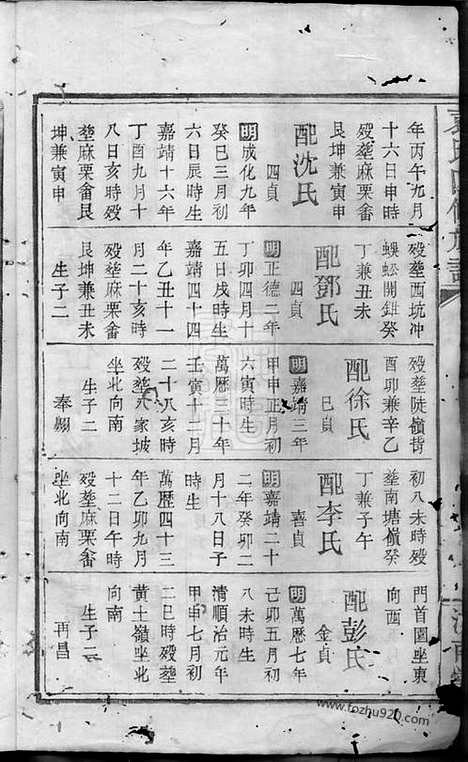 年丙午九月
十六日申時
殁塟麻栗畬
艮坤兼寅申
配沈氏
四貞
明成化九年
癸巳三月初
六日辰時生
嘉靖十六年
丁酉九月十
八日亥時殁
塟麻栗畬艮
坤兼寅申
殁塟西坑冲
蜈蚣開鉗癸
丁兼丑未
配鄧氏
四貞
明正德二年
丁卯四月十
五日戌時生
嘉靖四十四
年乙丑十一
月二十亥時
殁塟麻栗畬
艮坤兼丑未
生子二
殁塟陡嶺背
酉卯兼辛乙
配徐氏
巳貞
明嘉靖三年
甲申正月初
六寅時生
萬歴三十年
壬寅十二月
二十八亥時
殁塟八家坡
坐北向南
生子二
奉朝
初八未時殁
塟南塘嶺癸
丁兼子午
配李氏
喜貞
明嘉靖二十
二年癸卯二
月十八日子
時生
萬歴四十三
年乙卯九月
十二日午時
殁塟麻栗畬
坐北向南
門首園坐東
向西
配彭氏
金貞
明萬歴七年
己卯五月初
八未時生
清順治元年
甲申七月初
二巳時殁塟
黄土嶺坐北
向南
生子二
再昌
www.tozhu920.com